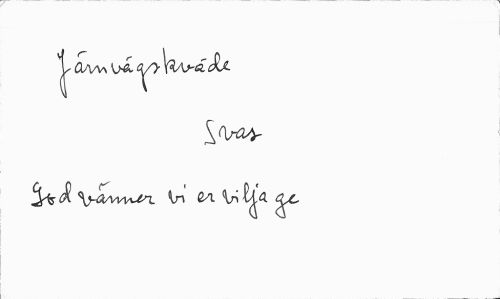 Järnvågskväde
Svas
God vänner vi er vilja ge